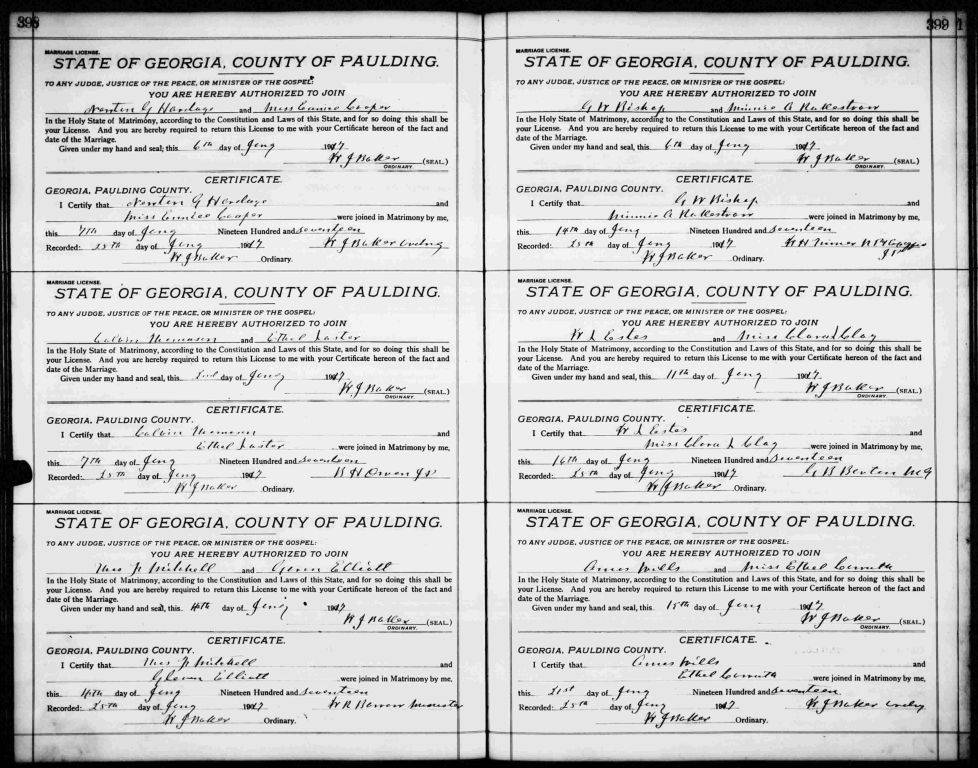 398
MARRIAGE LICENSE.
STATE OF GEORGIA, COUNTY OF PAULDING.
TO ANY JUDGE, JUSTICE OF THE PEACE, OR MINISTER OF THE GOSPEL:
YOU ARE HEREBY AUTHORIZED TO JOIN
Newton G Hardage and Miss Eunice Cooper
In the Holy State of Matrimony, according to the Constitution and Laws of this State, and for so doing this shall be
your License. And you are hereby required to return this License to me with your Certificate hereon of the fact and
date of the Marriage.
Given under my hand and seal, this 6th day of Jany 1917
W J Baker (SEAL.)
ORDINARY.
CERTIFICATE.
GEORGIA, PAULDING COUNTY.
I Certify that Newton G Hardage and
Miss Eunice Cooper were joined in Matrimony by me,
this 7th day of Jany Nineteen Hundred and seventeen
Recorded: 25th day of Jany 1917 W J Baker ordny
W J Baker Ordinary.
MARRIAGE LICENSE.
STATE OF GEORGIA, COUNTY OF PAULDING.
TO ANY JUDGE, JUSTICE OF THE PEACE, OR MINISTER OF THE GOSPEL:
YOU ARE HEREBY AUTHORIZED TO JOIN
Calvin and Ethel
In the Holy State of Matrimony, according to the Constitution and Laws of this State, and for so doing this shall be
your License. And you are hereby required to return this License to me with your Certificate hereon of the fact and
date of the Marriage.
Given under my hand and seal, this 2nd day of Jany 1917
W J Baker (SEAL.)
ORDINARY.
CERTIFICATE.
GEORGIA, PAULDING COUNTY.
I Certify that Calvin and
Ethel were joined in Matrimony by me,
this 7th day of Jany Nineteen Hundred and seventeen
Recorded: 25th day of Jany 1917 H Owen JP
W J Baker Ordinary.
MARRIAGE LICENSE.
STATE OF GEORGIA, COUNTY OF PAULDING.
TO ANY JUDGE, JUSTICE OF THE PEACE, OR MINISTER OF THE GOSPEL:
YOU ARE HEREBY AUTHORIZED TO JOIN
Mitchell and Elliott
In the Holy State of Matrimony, according to the Constitution and Laws of this State, and for so doing this shall be
your License. And you are hereby required to return this License to me with your Certificate hereon of the fact and
date of the Marriage.
Given under my hand and seal, this day of Jany 1917
W J Baker (SEAL.)
ORDINARY.
CERTIFICATE.
GEORGIA, PAULDING COUNTY.
I Certify that Mitchell and
Elliott were joined in Matrimony by me,
this day of Jany Nineteen Hundred and seventeen
Recorded: 25th day of Jany 1917 W R
W J Baker Ordinary.
399
MARRIAGE LICENSE.
STATE OF GEORGIA, COUNTY OF PAULDING.
TO ANY JUDGE, JUSTICE OF THE PEACE, OR MINISTER OF THE GOSPEL:
YOU ARE HEREBY AUTHORIZED TO JOIN
G W Bishop and Minnie A Rakestraw
In the Holy State of Matrimony, according to the Constitution and Laws of this State, and for so doing this shall be
your License. And you are hereby required to return this License to me with your Certificate hereon of the fact and
date of the Marriage.
Given under my hand and seal, this 6th day of Jany 1917
W J Baker (SEAL.)
ORDINARY.
CERTIFICATE.
GEORGIA, PAULDING COUNTY.
I Certify that G W Bishop and
Minnie A Rakestraw were joined in Matrimony by me,
this 14th day of Jany Nineteen Hundred and seventeen
Recorded: 25th day of Jany 1917
W J Baker Ordinary.
MARRIAGE LICENSE.
STATE OF GEORGIA, COUNTY OF PAULDING.
TO ANY JUDGE, JUSTICE OF THE PEACE, OR MINISTER OF THE GOSPEL:
YOU ARE HEREBY AUTHORIZED TO JOIN
W L Estes and Miss Clora L Clay
In the Holy State of Matrimony, according to the Constitution and Laws of this State, and for so doing this shall be
your License. And you are hereby required to return this License to me with your Certificate hereon of the fact and
date of the Marriage.
Given under my hand and seal, this 11th day of Jany 1917
W J Baker (SEAL.)
ORDINARY.
CERTIFICATE.
GEORGIA, PAULDING COUNTY.
I Certify that W L Estes and
Miss Clora L Clay were joined in Matrimony by me,
this 16th day of Jany Nineteen Hundred and seventeen
Recorded: 25th day of Jany 1917 G B Benton M G
W J Baker Ordinary.
MARRIAGE LICENSE.
STATE OF GEORGIA, COUNTY OF PAULDING.
TO ANY JUDGE, JUSTICE OF THE PEACE, OR MINISTER OF THE GOSPEL:
YOU ARE HEREBY AUTHORIZED TO JOIN
Amos Wills and Miss Ethel
In the Holy State of Matrimony, according to the Constitution and Laws of this State, and for so doing this shall be
your License. And you are hereby required to return this License to me with your Certificate hereon of the fact and
date of the Marriage.
Given under my hand and seal, this 15th day of Jany 1917
W J Baker (SEAL.)
ORDINARY.
CERTIFICATE.
GEORGIA, PAULDING COUNTY.
I Certify that Amos Wills and
Ethel were joined in Matrimony by me,
this 21st day of Jany Nineteen Hundred and seventeen
Recorded: 25th day of Jany 1917 W J Baker ordny
W J Baker Ordinary.